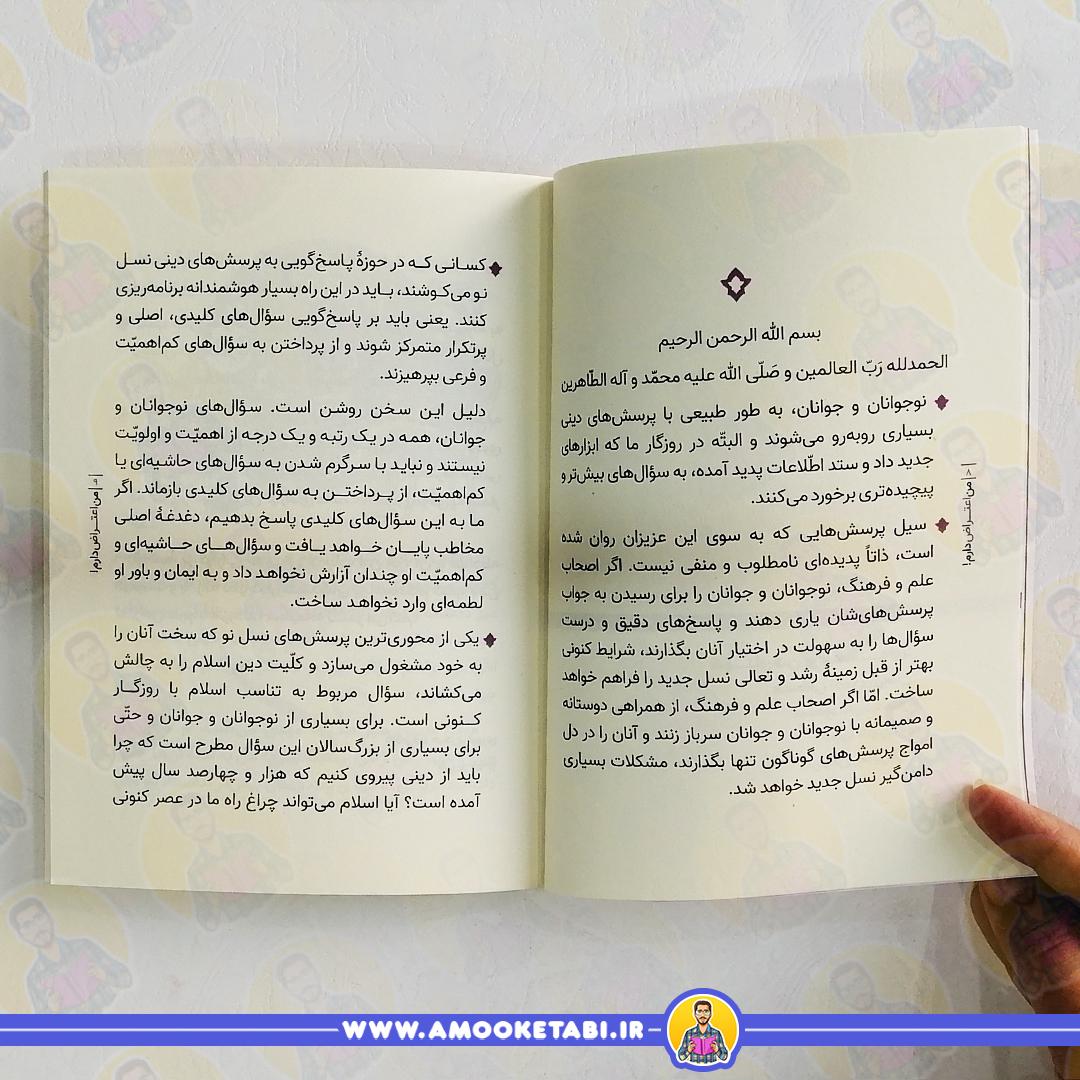 بسم الله الرحمن الرحیم
الحمدلله رَبّ العالمین و صَلّی الله علیه محمّد و آله الطّاهرین
نوجوانان و جوانان، به طور طبیعی با پرسش‌های دینی
بسیاری روبه‌رو می‌شوند و البتّه در روزگار ما که ابزارهای
جدید داد و ستد اطّلاعات پدید آمده، به سؤال‌های بیش‌تر و
پیچیده‌تری برخورد می‌کنند.
سیل پرسش‌هایی که به سوی این عزیزان روان شده
است، ذاتاً پدیده‌ای نامطلوب و منفی نیست. اگر اصحاب
علم و فرهنگ، نوجوانان و جوانان را برای رسیدن به جواب
پرسش‌های‌شان یاری دهند و پاسخ‌های دقیق و درست
سؤال‌ها را به سهولت در اختیار آنان بگذارند، شرایط کنونی
بهتر از قبل زمینۀ رشد و تعالی نسل جدید را فراهم خواهد
ساخت. امّا اگر اصحاب علم و فرهنگ، از همراهی دوستانه
و صمیمانه با نوجوانان و جوانان سرباز زنند و آنان را در دل
امواج پرسش‌های گوناگون تنها بگذارند، مشکلات بسیاری
دامن‌گیر نسل جدید خواهد شد.
من اعتراض دارم!
کسانی که در حوزۀ پاسخ‌گویی به پرسش‌های دینی نسل
نو می‌کوشند، باید در این راه بسیار هوشمندانه برنامه‌ریزی
کنند. یعنی باید بر پاسخ‌گویی سؤال‌های کلیدی، اصلی و
پرتکرار متمرکز شوند و از پرداختن به سؤال‌های کم‌اهمیّت
و فرعی بپرهیزند.
دلیل این سخن روشن است. سؤال‌های نوجوانان و
جوانان، همه در یک رتبه و یک درجه از اهمیّت و اولویّت
نیستند و نباید با سرگرم شدن به سؤال‌های حاشیه‌ای یا
کم‌اهمیّت، از پرداختن به سؤال‌های کلیدی بازماند. اگر
ما به این سؤال‌های کلیدی پاسخ بدهیم، دغدغۀ اصلی
مخاطب پایان خواهد یافت و سؤال‌های حاشیه‌ای و
کم‌اهمیّت او چندان آزارش نخواهد داد و به ایمان و باور او
لطمه‌ای وارد نخواهد ساخت.
یکی از محوری‌ترین پرسش‌های نسل نو که سخت آنان را
به خود مشغول می‌سازد و کلّیت دین اسلام را به چالش
می‌کشاند، سؤال مربوط به تناسب اسلام با روزگار
کنونی است. برای بسیاری از نوجوانان و جوانان و حتّی
برای بسیاری از بزرگ‌سالان این سؤال مطرح است که چرا
باید از دینی پیروی کنیم که هزار و چهارصد سال پیش
آمده است؟ آیا اسلام می‌تواند چراغ راه ما در عصر کنونی
من اعتراض دارم!
WWW.AMOOKETABI.IR